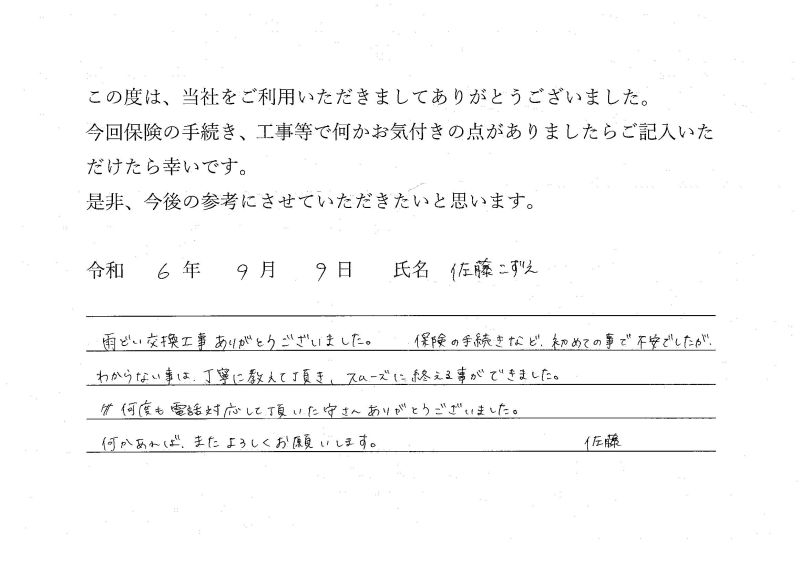 この度は、当社をご利用いただきましてありがとうございました。
今回保険の手続き、工事等で何かお気付きの点がありましたらご記入いた
だけたら幸いです。
是非、今後の参考にさせていただきたいと思います。
令和 6 年 9 月 9 日 氏名 佐藤こずえ
雨どい交換工事ありがとうございました。 保険の手続きなど、初めての事で不安でしたが、
わからない事は、丁寧に教えて頂き、スムーズに終える事ができました。
何度も電話対応して頂いた守さんありがとうございました。
何かあれば、またよろしくお願いします。 佐藤